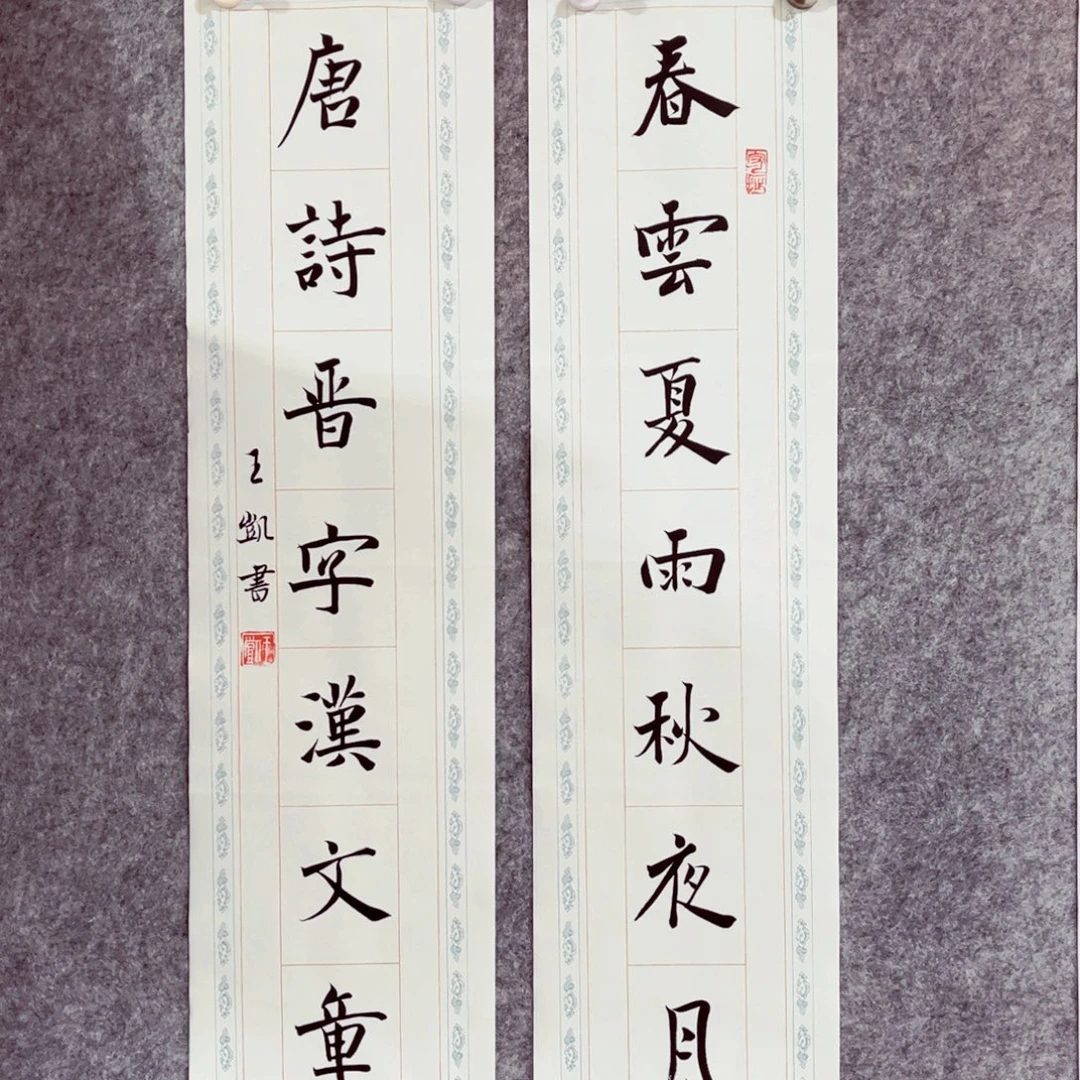 春雲夏雨秋夜月
唐詩晋字漢文章
王凱書